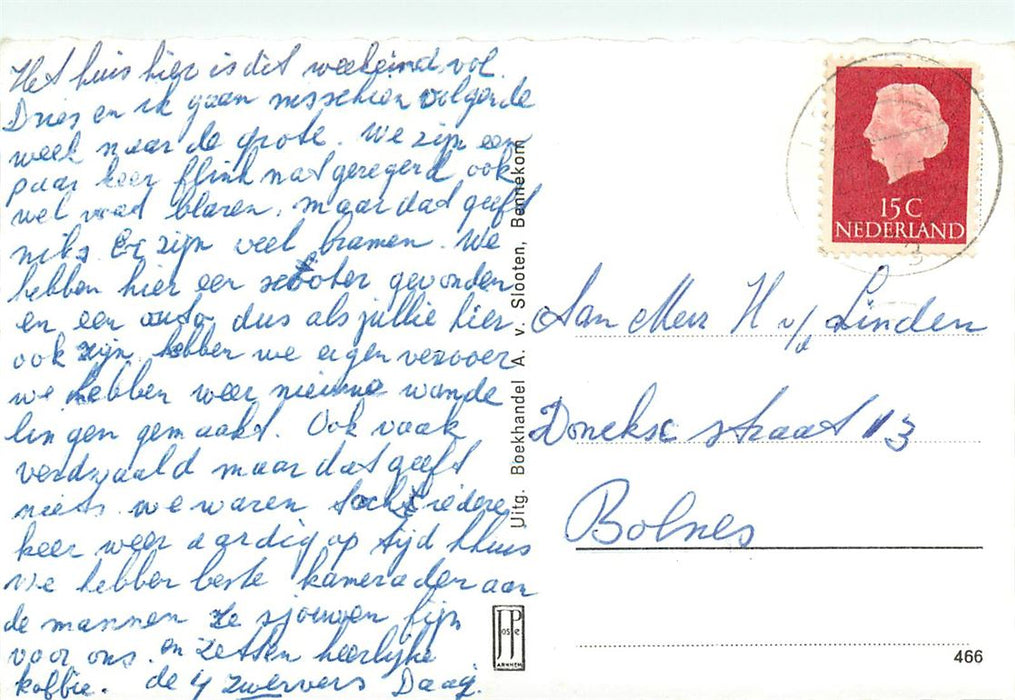 Het huis hier is dit weekeind vol.
Dries en ik gaan misschien volgende
week naar de grote. We zijn een
paar keer flink nat geregend ook
wel wat blaren, maar dat geeft
niks. Er zijn veel bramen. We
hebben hier een scooter gevonden
en een auto dus als jullie hier
ook zijn hebben we eigen vervoer
we hebben weer nieuwe wande
lingen gemaakt. Ook vaak
verdwaald maar dat geeft
niets we waren toch iedere
keer weer aardig op tijd thuis
We hebben beste kameraden aan
de mannen ze sjouwen fijn
voor ons. en zetten heerlijke
koffie. de 4 zwervers Daag.
Uitg. Boekhandel A. v. Slooten, Bennekom
JosPe
ARNHEM
15 C
NEDERLAND
Aan Mevr H v/d Linden
Donckse straat 13
Bolnes
466